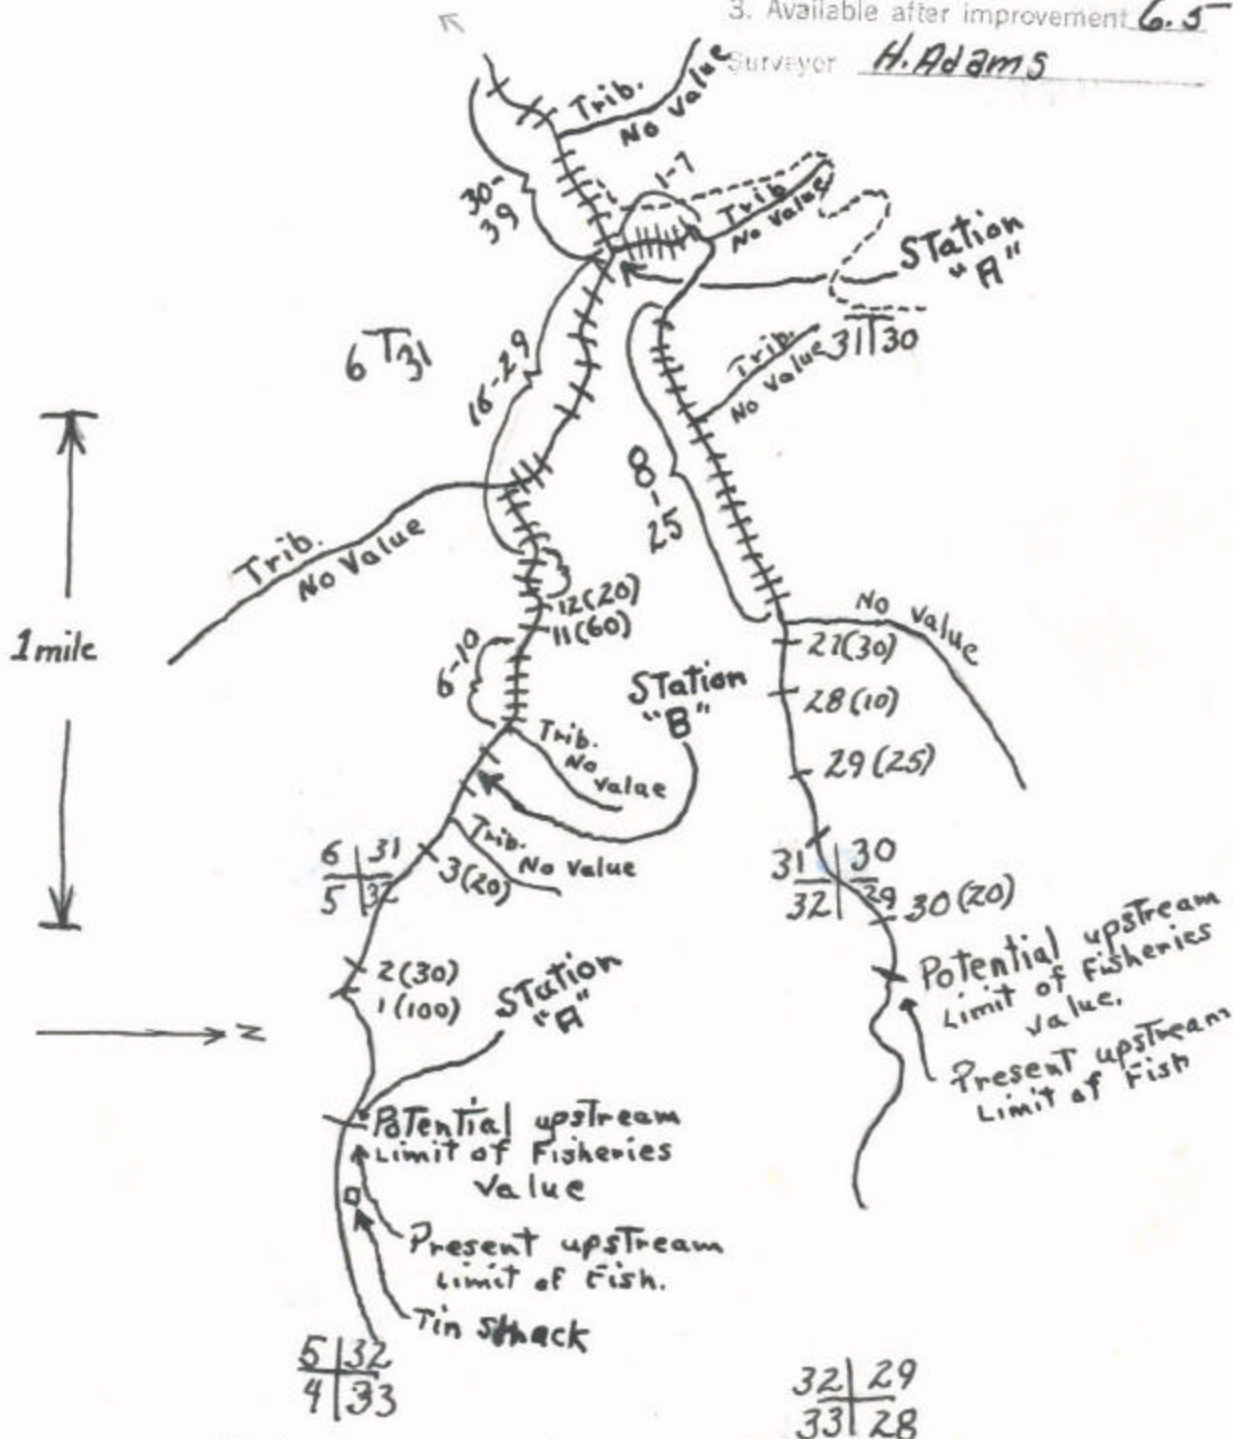 3. Available after improvement 6.5
Surveyor H. Adams
Trib.
No Value
30-
39
1-7
Trib
No Value
Station
"A"
6 31
16-29
Trib.
No Value
31 30
8-
25
Trib.
No Value
1 mile
12(20)
11(60)
6-10
No Value
27(30)
28(10)
29(25)
Station
"B"
Trib.
No
Value
Trib.
No Value
6 31
5 32
3(20)
31 30
32 29
30(20)
2(30)
1(100)
Station
"A"
Potential upstream
Limit of Fisheries
Value.
Present upstream
Limit of Fish
N
Potential upstream
Limit of Fisheries
Value
Present upstream
Limit of Fish.
Tin Shack
5 32
4 33
32 29
33 28